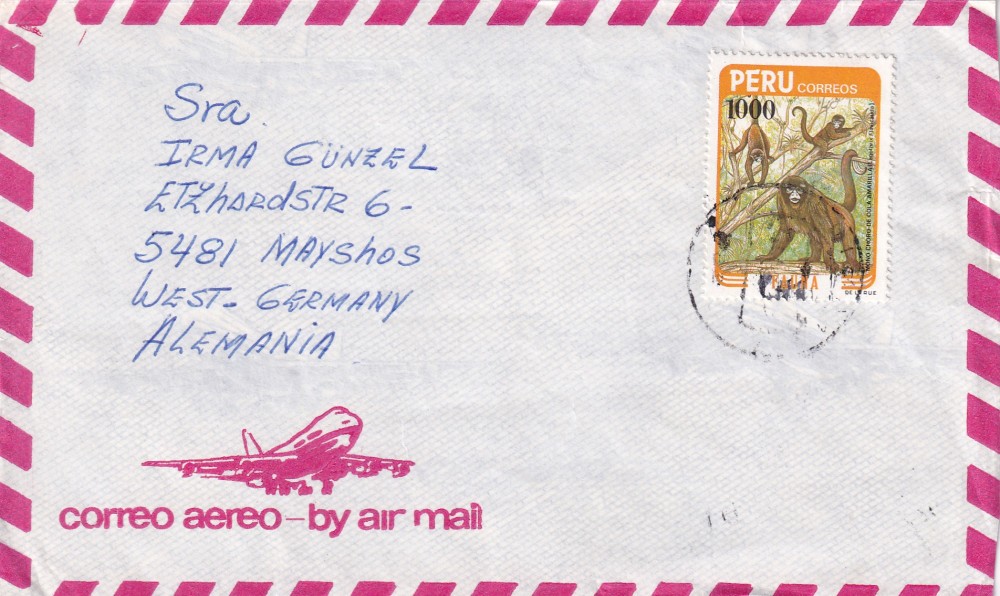 Sra.
IRMA GÜNZEL
ETZhARdSTR 6-
5481 MAYShOS
WEST-GERMANY
ALEMANIA
PERU CORREOS
1000
MONO CHORO DE COLA AMARILLA
FAUNA
correo aereo-by air mail